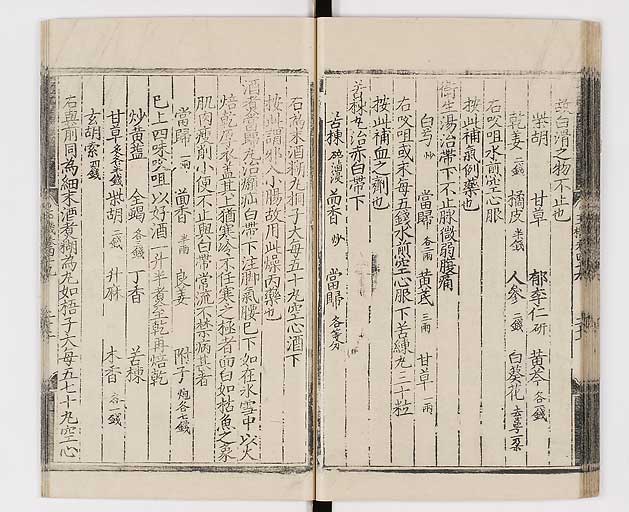 故白滑之物不止也
柴胡 甘草 郁李仁研 黄芩各一錢
乾姜二錢 橘皮半錢 人參二錢 白葵花
右㕮咀水煎空心服
按此補氣例藥也
衛生湯治帶下不止脉微弱腹痛
白芍炒 當歸各二兩 黄茋三兩 甘草一兩
右㕮咀或末每五錢水煎空心服下苦練丸三十粒
按此補血之劑也
苦楝丸治赤白帶下
苦楝 茴香炒 當歸各等分
右為末酒糊丸桐子大每五十丸空心酒下
按此謂邪入小腸故用此燥丙藥也
酒煮當歸丸治癩疝白帶下注脚氣腰已下如在水雪中以火
焙乾厚衣盖其上猶寒冷不任寒之極者面白如枯魚之象
肌肉瘦削小便不止與白帶常流不禁病甚者
當歸一兩 茴香半兩 良姜 附子炮各七錢
已上四味㕮咀以好酒一升半煮至乾再焙乾
炒黄盐 全蝎各三錢 丁香 苦楝
甘草 柴胡二錢 升麻 木香各一錢
玄胡索四錢
右與前同為細末酒煮糊為丸如梧子大每五七十丸空心